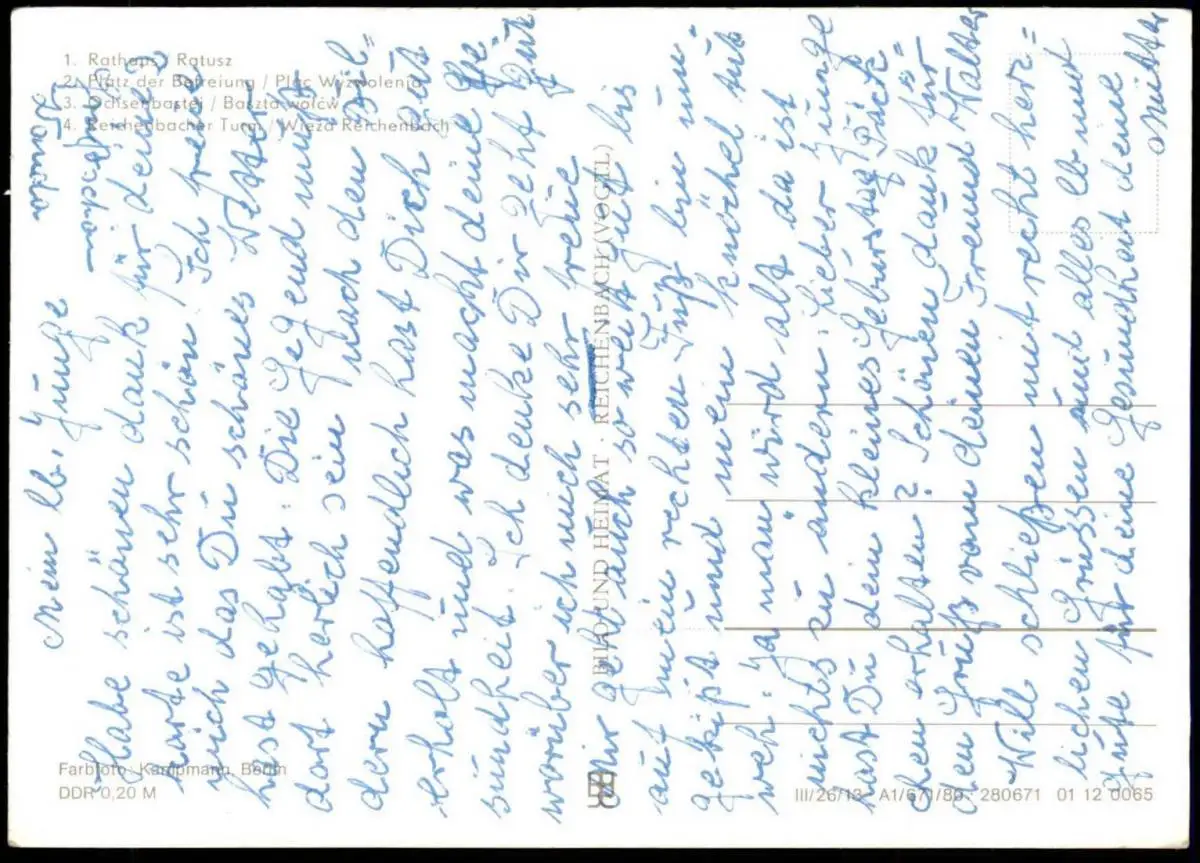 1. Rathaus / Ratusz
2. Platz der Befreiung / Plac Wyzwolenia
3. Ochsenbastei / Baszta wołów
4. Reichenbacher Turm / Wieża Reichenbach
Mein lb. Junge
Habe schönen dank für deine
karte ist sehr schön. Ich freue
mich das Du schönes Wetter
hast gehabt. Die Gegend muß
dort herlich sein nach den Bil=
dern hoffendlich hast Dich gut
erholt und was macht deine Ge=
sundheit. Ich denke Dir geht gut
worüber ich mich sehr freue
Mir geht auch so weit gut bis
auf mein rechten Fuß bin um=
gekipt und mein Knöchel tut
weh. Ja man wird alt da ist
nichts zu ändern. Lieber Junge
hast Du dein kleines Geburstag Päck=
chen erhalten? Schönen dank für
den Gruß vom deinen Freund Walter
Will schließen mit recht herz=
lichen Grüssen und alles lb und
gute für deine Gesundheit deine
Mutter
BILD UND HEIMAT · REICHENBACH (VOGEL)
Farbfoto: Kampmann, Berlin
DDR 0,20 M
III/26/13 A1/671/80 280671 01 12 0065